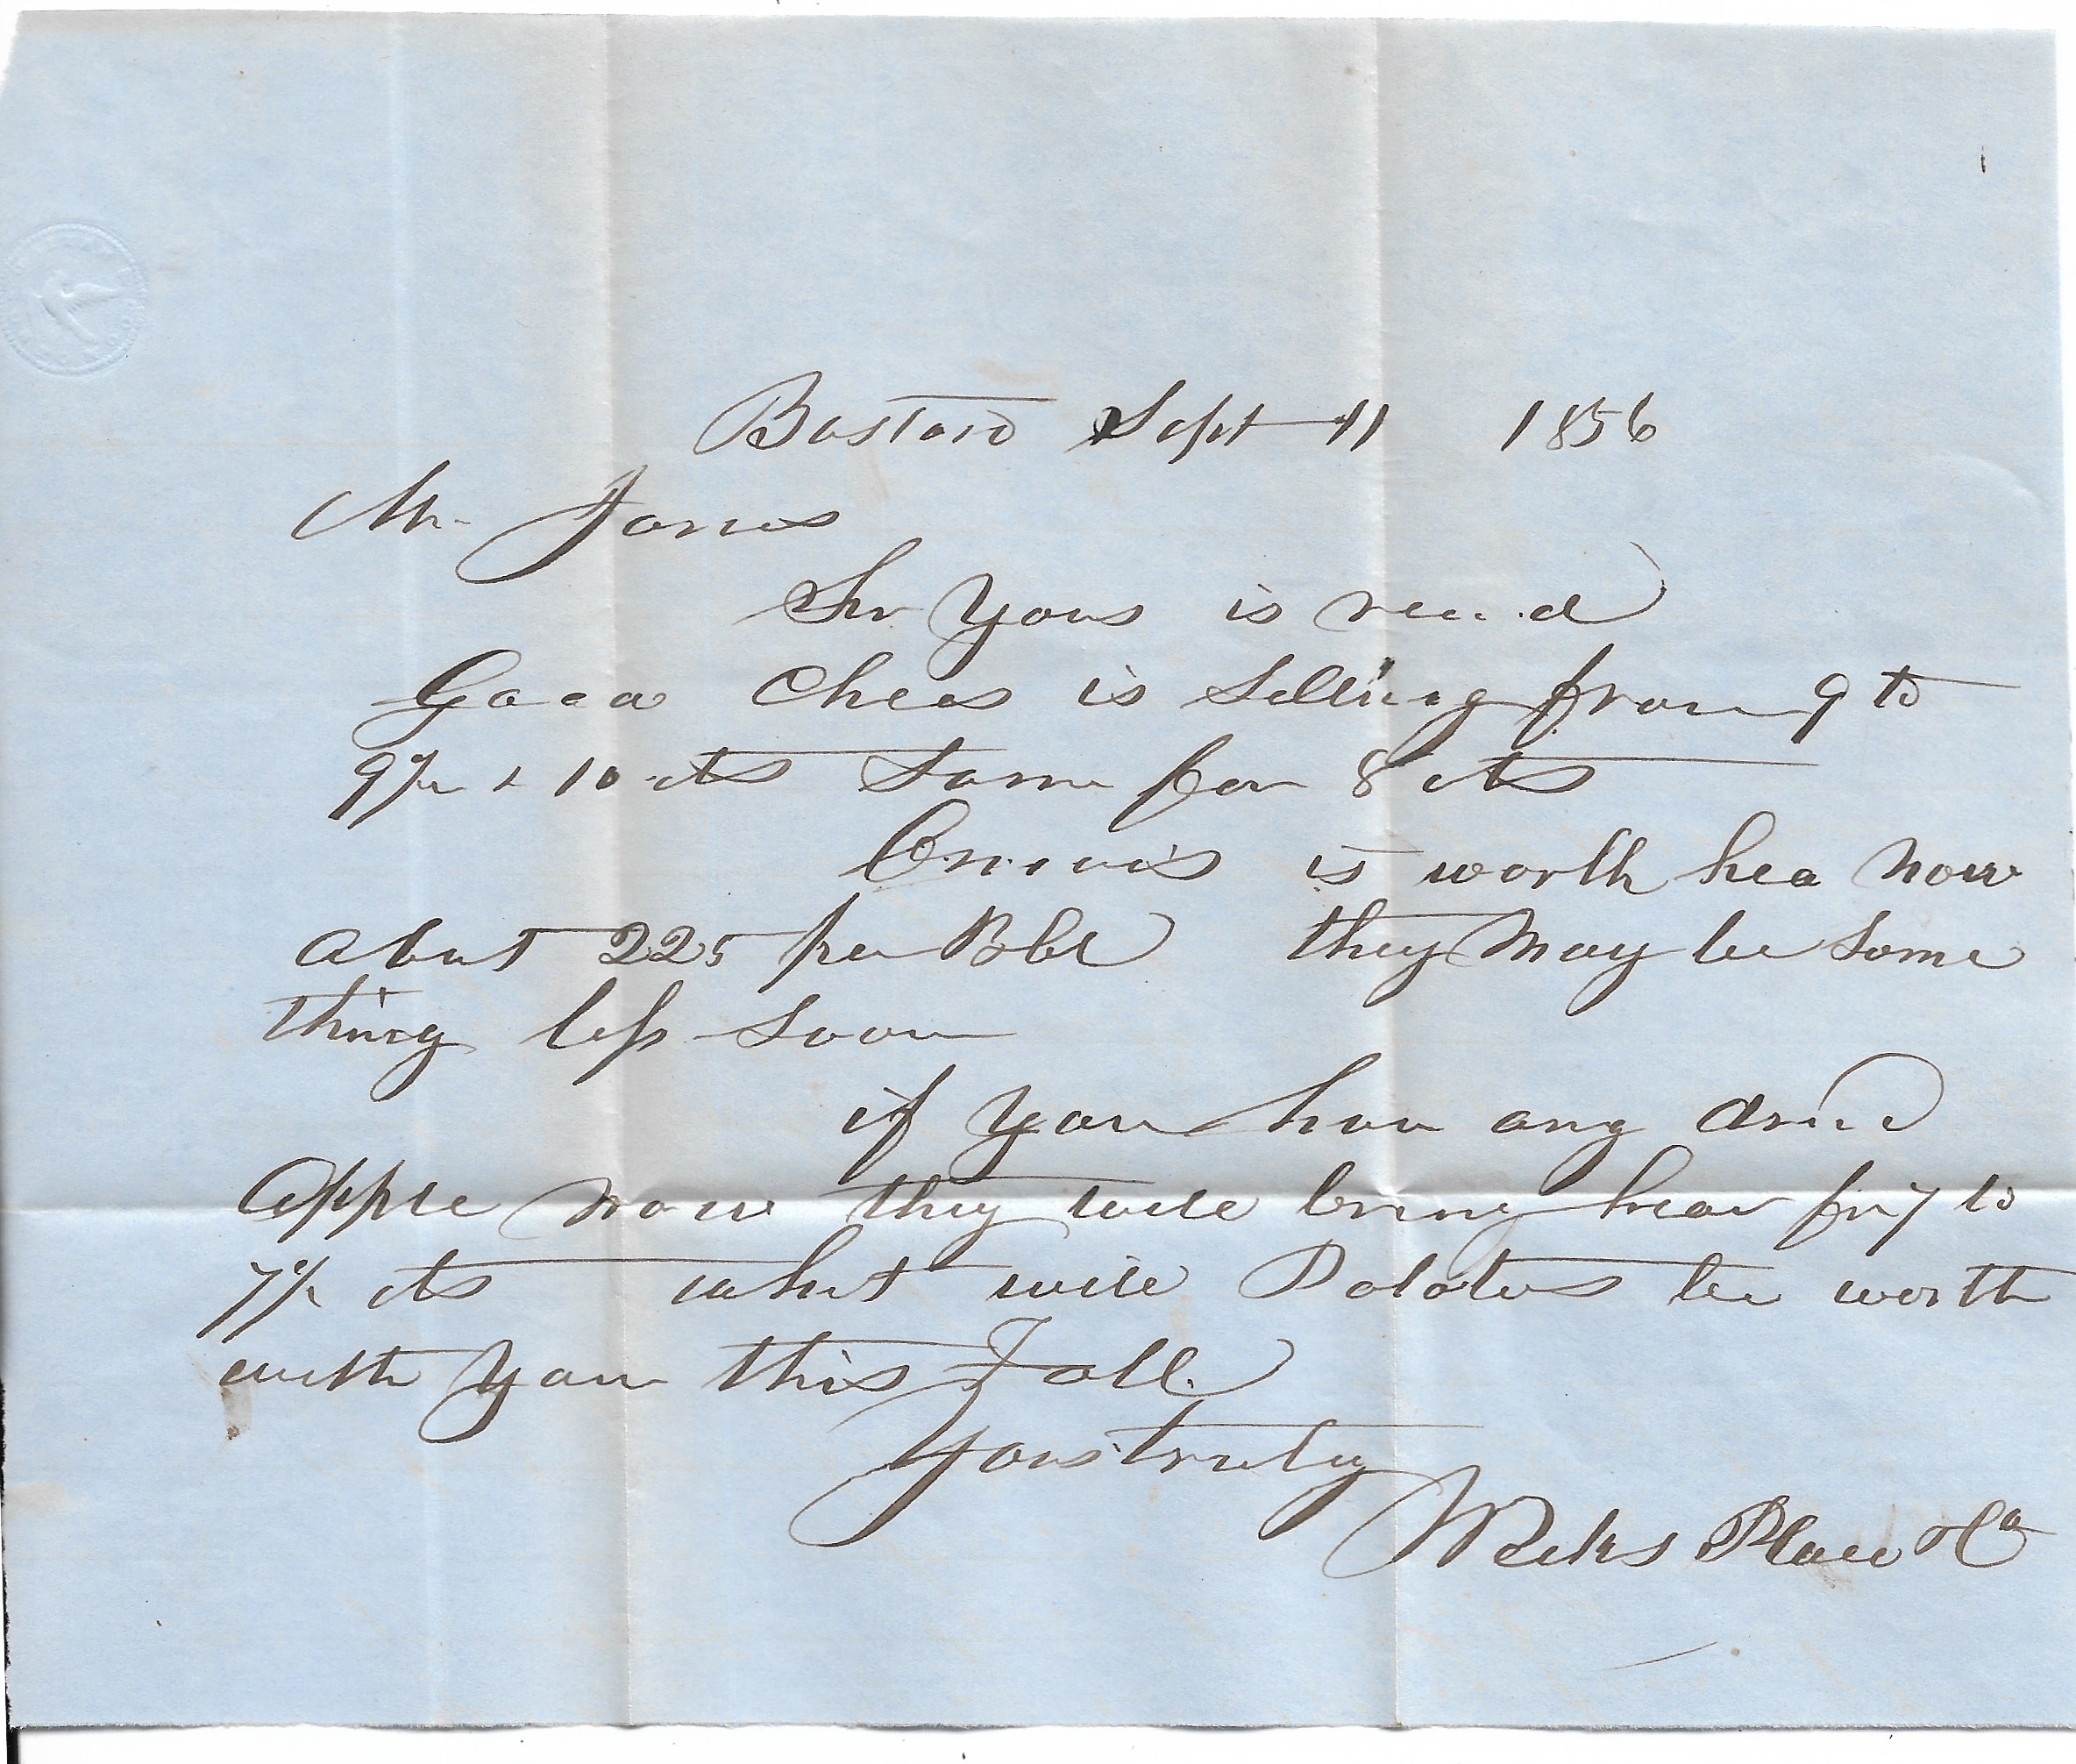 Boston Sept 11 1856
Mr Jones
Sir Yours is recd
Good Chees is Selling from 9 to
9½ & 10 cts Some for 8 cts
Onions is worth hea Now
about 225 per Bbl they May be Some
thing less soon
if you have any dried
Apple now they will bring hear from 7 to
7½ cts what will Potatoes be worth
with you this Fall.
Yours truly
Weeks & Co